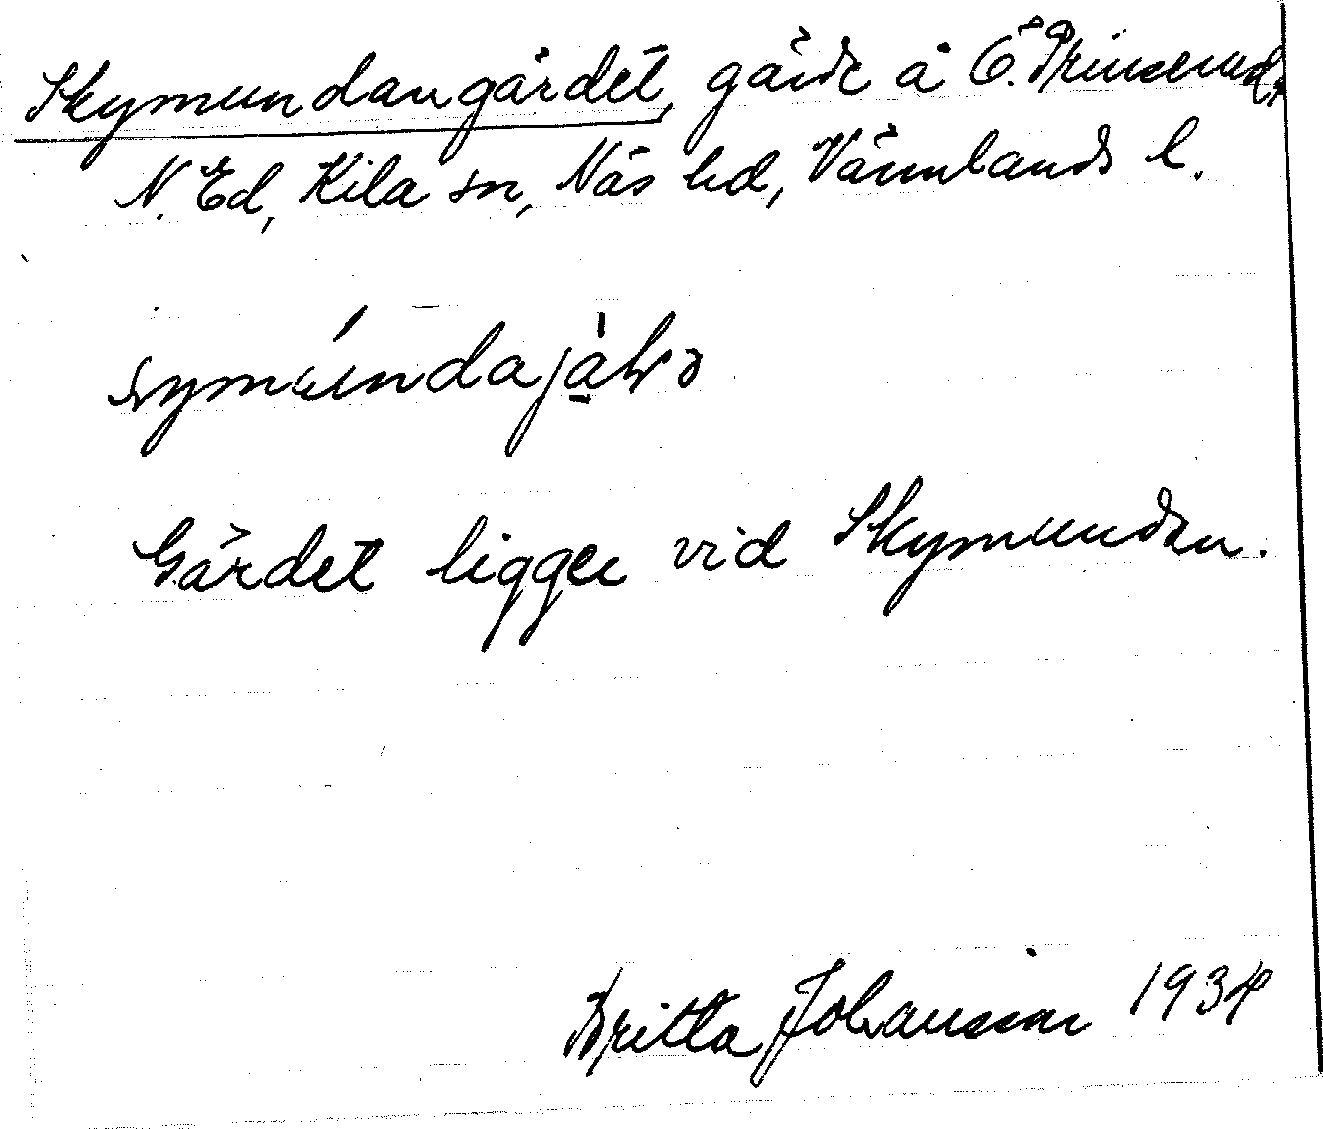 Skymundangärdet, gärde å Ö. Prinserud,
N. Ed, Kila sn, Näs hd, Värmlands l.
Gärdet ligger vid Skymunden.
Britta Johansson 1934